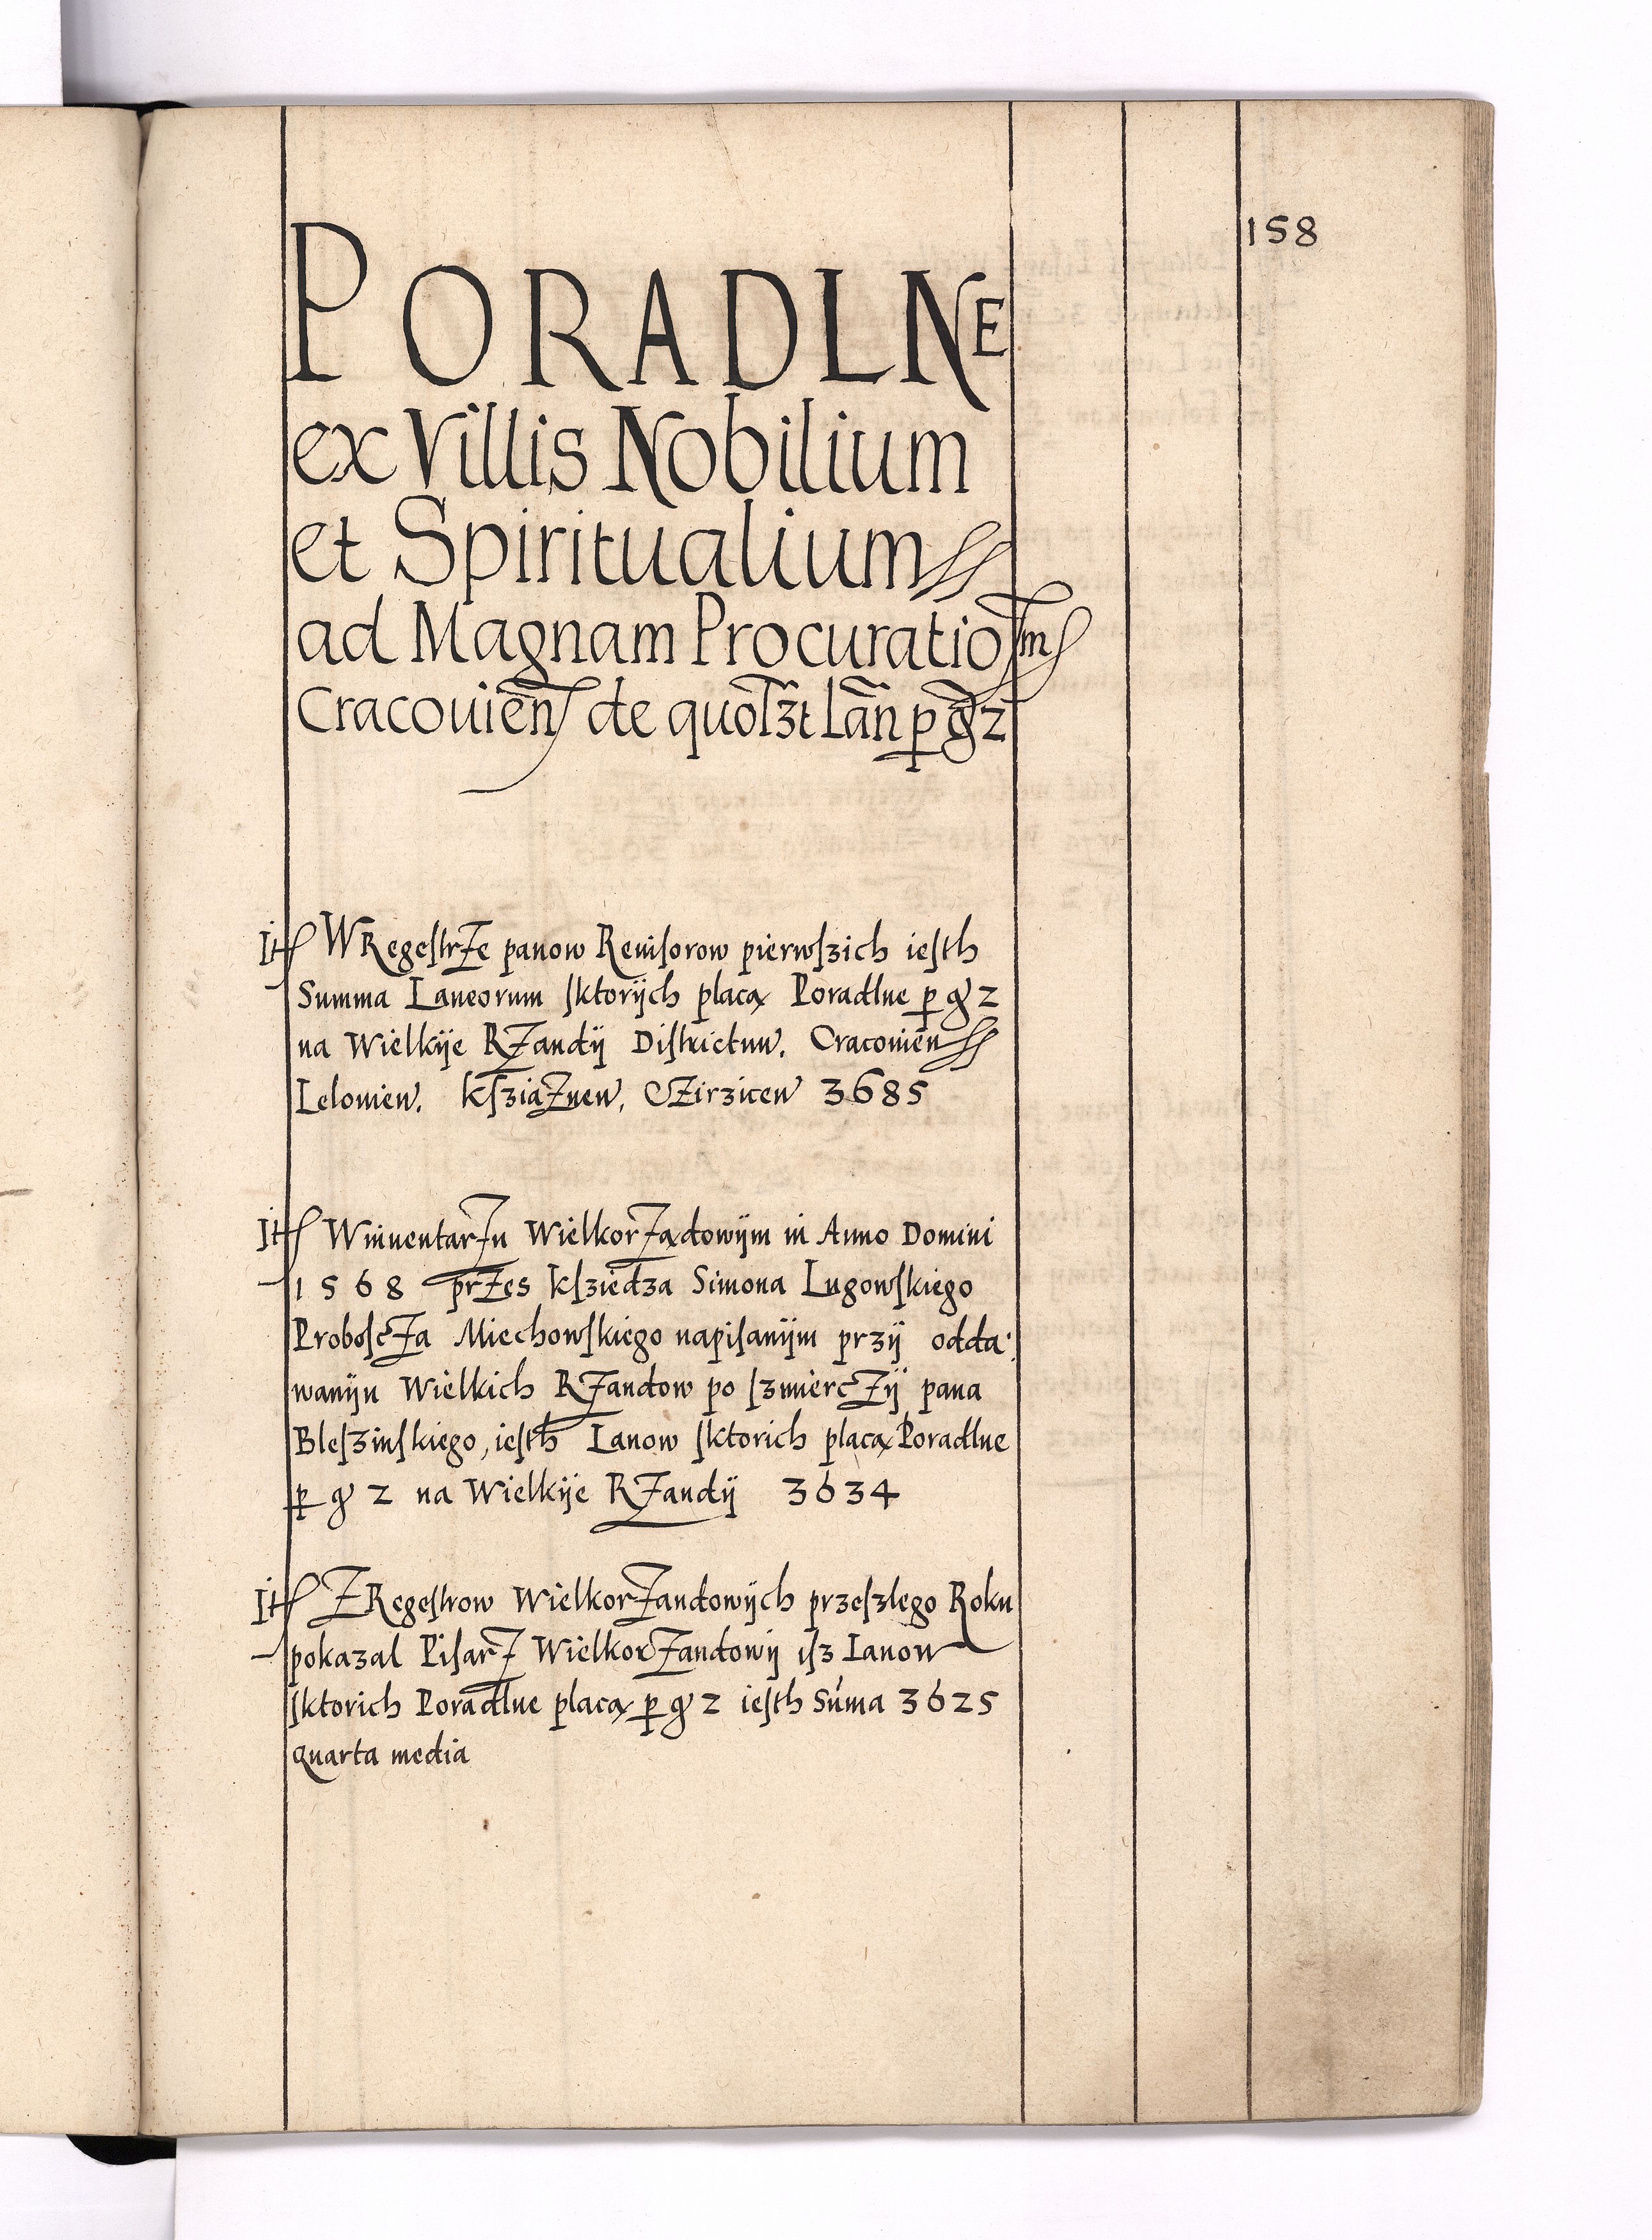 158
PORADLNE
ex Villis Nobilium
et Spiritualium
ad Magnam Procuratio͞m
Cracouien̄ de quol3t Lan̄ p gͬ 2
It WRegestrZe panow Reuisorow pierwſzich ieſth
Summa Laneorum ſktorÿch placą Poradlne p gͬ 2
na Wielkÿe RZandÿ Diſtrictuu. Cracouien̄
Lelouien. kſziaZnen, CZirzicen 3685
It WinuentarZu WielkorZądowÿm in Anno Domini
1568 prZes kſziedza Simona Lugowſkiego
ProboſcZa Miechowſkiego napiſanÿm przÿ odda:
wanÿu Wielkich RZandow po ſzmiercZÿ pana
Bleſzinſkiego, ieſth Lanow ſktorich placą Poradlne
p gͬ 2 na Wielkÿe RZandÿ 3634
It ZRegeſtrow WielkorZandowÿch przeſzlego Roku
pokazal PiſarZ WielkorZandowÿ iſz Lanow
ſktorich Poradlne placą p gͬ 2 ieſth Sum̄a 3625
quarta media